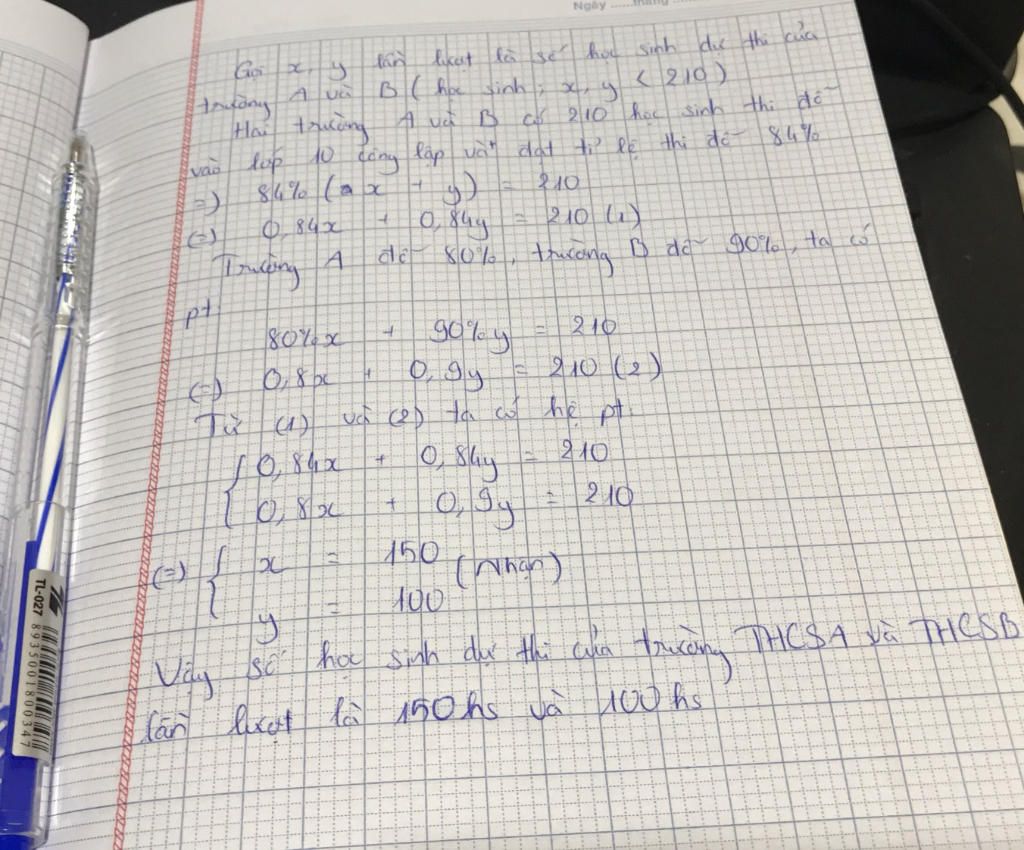 Ngày ......tháng ......
Gọi x, y lần lượt là số học sinh dự thi của
trường A và B (học sinh; x, y < 210)
Hai trường A và B có 210 học sinh thi đỗ
vào lớp 10 công lập và đạt tỉ lệ thi đỗ 84%
=) 84% (x + y) = 210
(=) 0,84x + 0,84y = 210 (1)
Trường A đỗ 80%, trường B đỗ 90%, ta có
pt:
80%x + 90%y = 210
(=) 0,8x + 0,9y = 210 (2)
Từ (1) và (2) ta có hệ pt:
{ 0,84x + 0,84y = 210
0,8x + 0,9y = 210
(=) { x = 150 (Nhận)
y = 100
Vậy số học sinh dự thi của trường THCSA và THCSB
lần lượt là 150hs và 100hs
TL-027
8935001800347